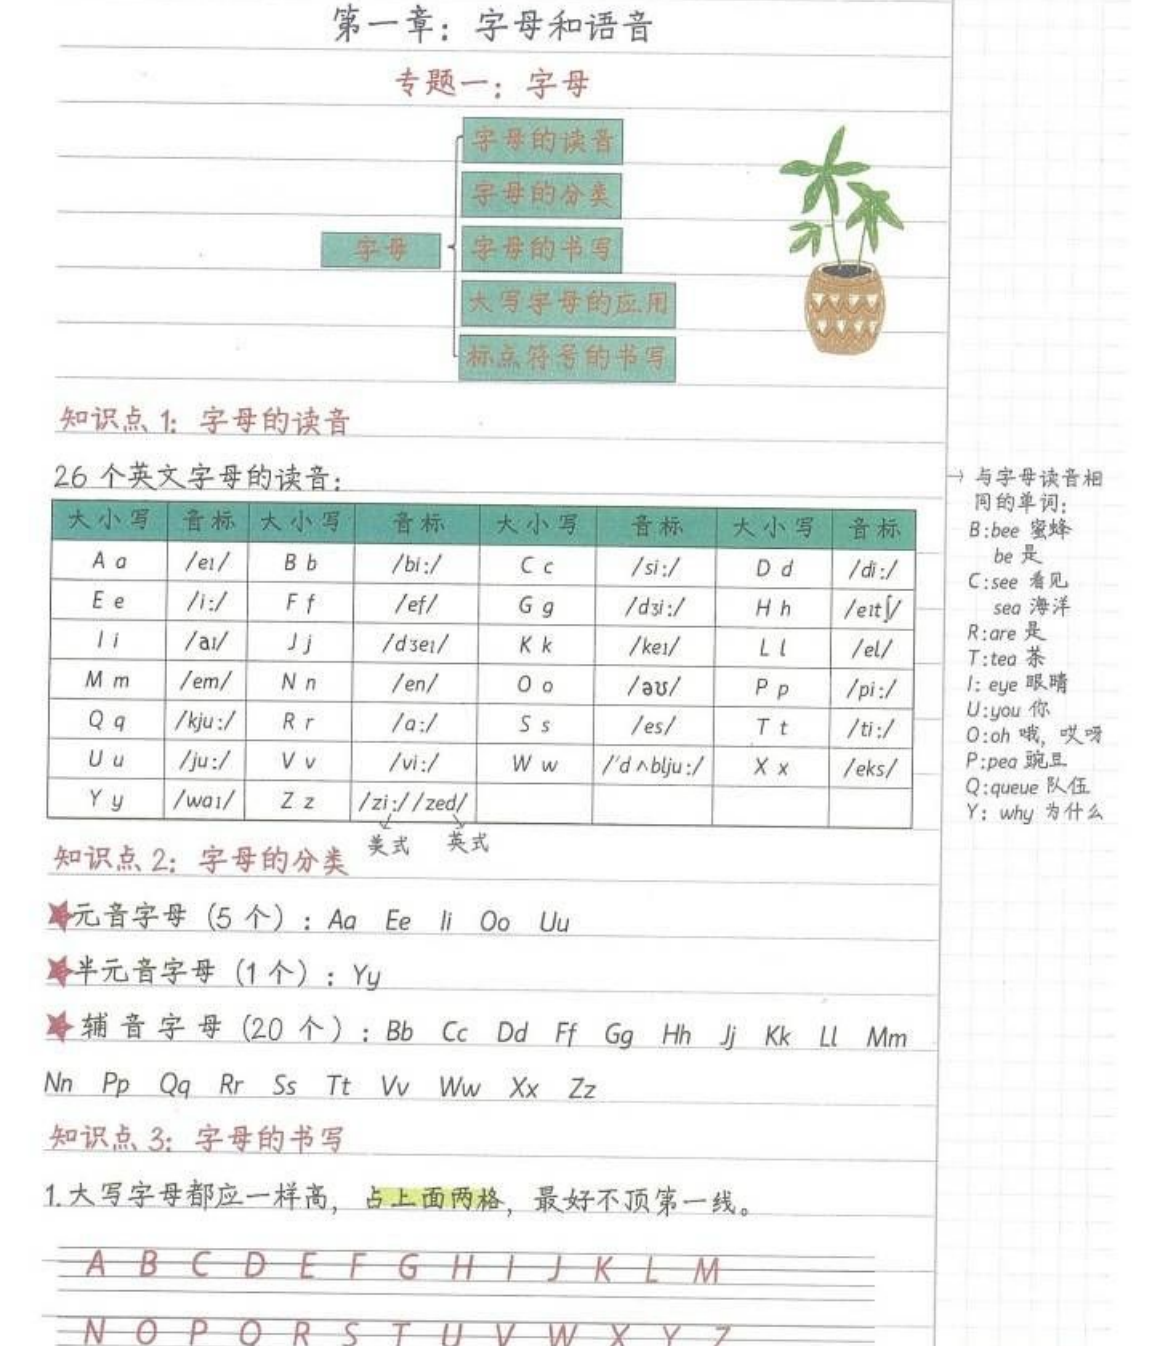 第一章：字母和语音
专题一：字母
字母的读音
字母的分类
字母
字母的书写
大写字母的应用
标点符号的书写
知识点 1：字母的读音
26 个英文字母的读音：
大小写 音标 大小写 音标 大小写 音标 大小写 音标
A a /eɪ/ B b /bi:/ C c /si:/ D d /di:/
E e /i:/ F f /ef/ G g /dʒi:/ H h /eɪtʃ/
I i /aɪ/ J j /dʒeɪ/ K k /keɪ/ L l /el/
M m /em/ N n /en/ O o /əʊ/ P p /pi:/
Q q /kju:/ R r /a:/ S s /es/ T t /ti:/
U u /ju:/ V v /vi:/ W w /'dʌblju:/ X x /eks/
Y y /waɪ/ Z z /zi://zed/
美式 英式
→ 与字母读音相
同的单词：
B:bee 蜜蜂
be 是
C:see 看见
sea 海洋
R:are 是
T:tea 茶
I: eye 眼睛
U:you 你
O:oh 哦，哎呀
P:pea 豌豆
Q:queue 队伍
Y: why 为什么
知识点 2：字母的分类
元音字母（5 个）：Aa Ee Ii Oo Uu
半元音字母（1 个）：Yy
辅音字母（20 个）：Bb Cc Dd Ff Gg Hh Jj Kk Ll Mm
Nn Pp Qq Rr Ss Tt Vv Ww Xx Zz
知识点 3：字母的书写
1.大写字母都应一样高，占上面两格，最好不顶第一线。
A B C D E F G H I J K L M
N O P Q R S T U V W X Y Z